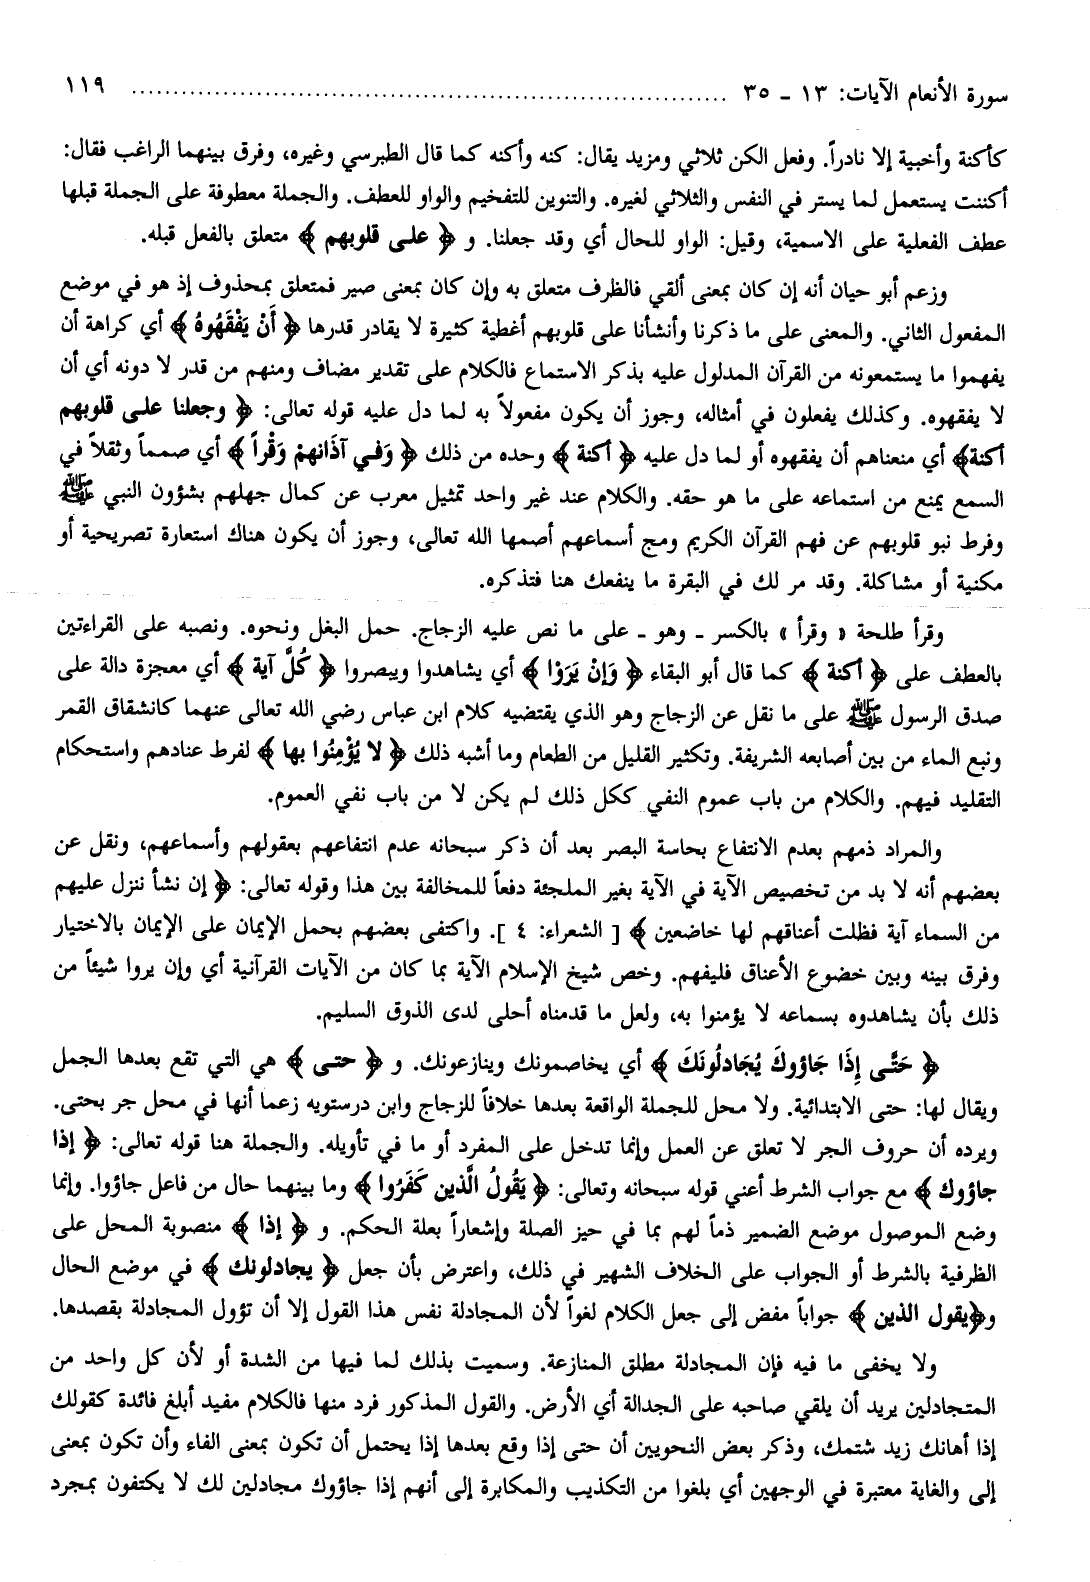 سورة الأنعام الآيات: ١٣ ـ ٣٥ ........................................................................ ١١٩
كأكنة وأخبية إلا نادراً. وفعل الكن ثلاثي ومزيد يقال: كنه وأكنه كما قال الطبرسي وغيره، وفرق بينهما الراغب فقال:
أكننت يستعمل لما يستر في النفس والثلاثي لغيره. والتنوين للتفخيم والواو للعطف. والجملة معطوفة على الجملة قبلها
عطف الفعلية على الاسمية، وقيل: الواو للحال أي وقد جعلنا. و ﴿ على قلوبهم ﴾ متعلق بالفعل قبله.
وزعم أبو حيان أنه إن كان بمعنى ألقي فالظرف متعلق به وإن كان بمعنى صير فمتعلق بمحذوف إذ هو في موضع
المفعول الثاني. والمعنى على ما ذكرنا وأنشأنا على قلوبهم أغطية كثيرة لا يقادر قدرها ﴿ أَنْ يَفْقَهُوهُ ﴾ أي كراهة أن
يفهموا ما يستمعونه من القرآن المدلول عليه بذكر الاستماع فالكلام على تقدير مضاف ومنهم من قدر لا دونه أي أن
لا يفقهوه. وكذلك يفعلون في أمثاله، وجوز أن يكون مفعولاً به لما دل عليه قوله تعالى: ﴿ وجعلنا على قلوبهم
أكنة﴾ أي منعناهم أن يفقهوه أو لما دل عليه ﴿ أكنة ﴾ وحده من ذلك ﴿ وَفي آذَانهمْ وَقْراً ﴾ أي صمماً وثقلاً في
السمع يمنع من استماعه على ما هو حقه. والكلام عند غير واحد تمثيل معرب عن كمال جهلهم بشؤون النبي ﷺ
وفرط نبو قلوبهم عن فهم القرآن الكريم ومج أسماعهم أصمها الله تعالى، وجوز أن يكون هناك استعارة تصريحية أو
مكنية أو مشاكلة. وقد مر لك في البقرة ما ينفعك هنا فتذكره.
وقرأ طلحة « وقرأ » بالكسر ـ وهو ـ على ما نص عليه الزجاج. حمل البغل ونحوه. ونصبه على القراءتين
بالعطف على ﴿ أكنة ﴾ كما قال أبو البقاء ﴿ وَإنْ يَرَوْا ﴾ أي يشاهدوا ويبصروا ﴿ كُلَّ آية ﴾ أي معجزة دالة على
صدق الرسول ﷺ على ما نقل عن الزجاج وهو الذي يقتضيه كلام ابن عباس رضي الله تعالى عنهما كانشقاق القمر
ونبع الماء من بين أصابعه الشريفة. وتكثير القليل من الطعام وما أشبه ذلك ﴿ لا يُؤْمِنُوا بها ﴾ لفرط عنادهم واستحكام
التقليد فيهم. والكلام من باب عموم النفي ككل ذلك لم يكن لا من باب نفي العموم.
والمراد ذمهم بعدم الانتفاع بحاسة البصر بعد أن ذكر سبحانه عدم انتفاعهم بعقولهم وأسماعهم، ونقل عن
بعضهم أنه لا بد من تخصيص الآية في الآية بغير الملجئة دفعاً للمخالفة بين هذا وقوله تعالى: ﴿ إن نشأ ننزل عليهم
من السماء آية فظلت أعناقهم لها خاضعين ﴾ [ الشعراء: ٤ ]. واكتفى بعضهم بحمل الإيمان على الإيمان بالاختيار
وفرق بينه وبين خضوع الأعناق فليفهم. وخص شيخ الإسلام الآية بما كان من الآيات القرآنية أي وإن يروا شيئاً من
ذلك بأن يشاهدوه بسماعه لا يؤمنوا به، ولعل ما قدمناه أحلى لدى الذوق السليم.
﴿ حَتَّى إِذَا جَاؤوكَ يُجَادلُونَكَ ﴾ أي يخاصمونك وينازعونك. و ﴿ حتى ﴾ هي التي تقع بعدها الجمل
ويقال لها: حتى الابتدائية. ولا محل للجملة الواقعة بعدها خلافاً للزجاج وابن درستويه زعما أنها في محل جر بحتى.
ويرده أن حروف الجر لا تعلق عن العمل وإنما تدخل على المفرد أو ما في تأويله. والجملة هنا قوله تعالى: ﴿ إذا
جاؤوك ﴾ مع جواب الشرط أعني قوله سبحانه وتعالى: ﴿ يَقُولُ الَّذين كَفَرُوا ﴾ وما بينهما حال من فاعل جاؤوا. وإنما
وضع الموصول موضع الضمير ذماً لهم بما في حيز الصلة وإشعاراً بعلة الحكم. و ﴿ إذا ﴾ منصوبة المحل على
الظرفية بالشرط أو الجواب على الخلاف الشهير في ذلك، واعترض بأن جعل ﴿ يجادلونك ﴾ في موضع الحال
و﴿يقول الذين ﴾ جواباً مفض إلى جعل الكلام لغواً لأن المجادلة نفس هذا القول إلا أن تؤول المجادلة بقصدها.
ولا يخفى ما فيه فإن المجادلة مطلق المنازعة. وسميت بذلك لما فيها من الشدة أو لأن كل واحد من
المتجادلين يريد أن يلقي صاحبه على الجدالة أي الأرض. والقول المذكور فرد منها فالكلام مفيد أبلغ فائدة كقولك
إذا أهانك زيد شتمك، وذكر بعض النحويين أن حتى إذا وقع بعدها إذا يحتمل أن تكون بمعنى الفاء وأن تكون بمعنى
إلى والغاية معتبرة في الوجهين أي بلغوا من التكذيب والمكابرة إلى أنهم إذا جاؤوك مجادلين لك لا يكتفون بمجرد